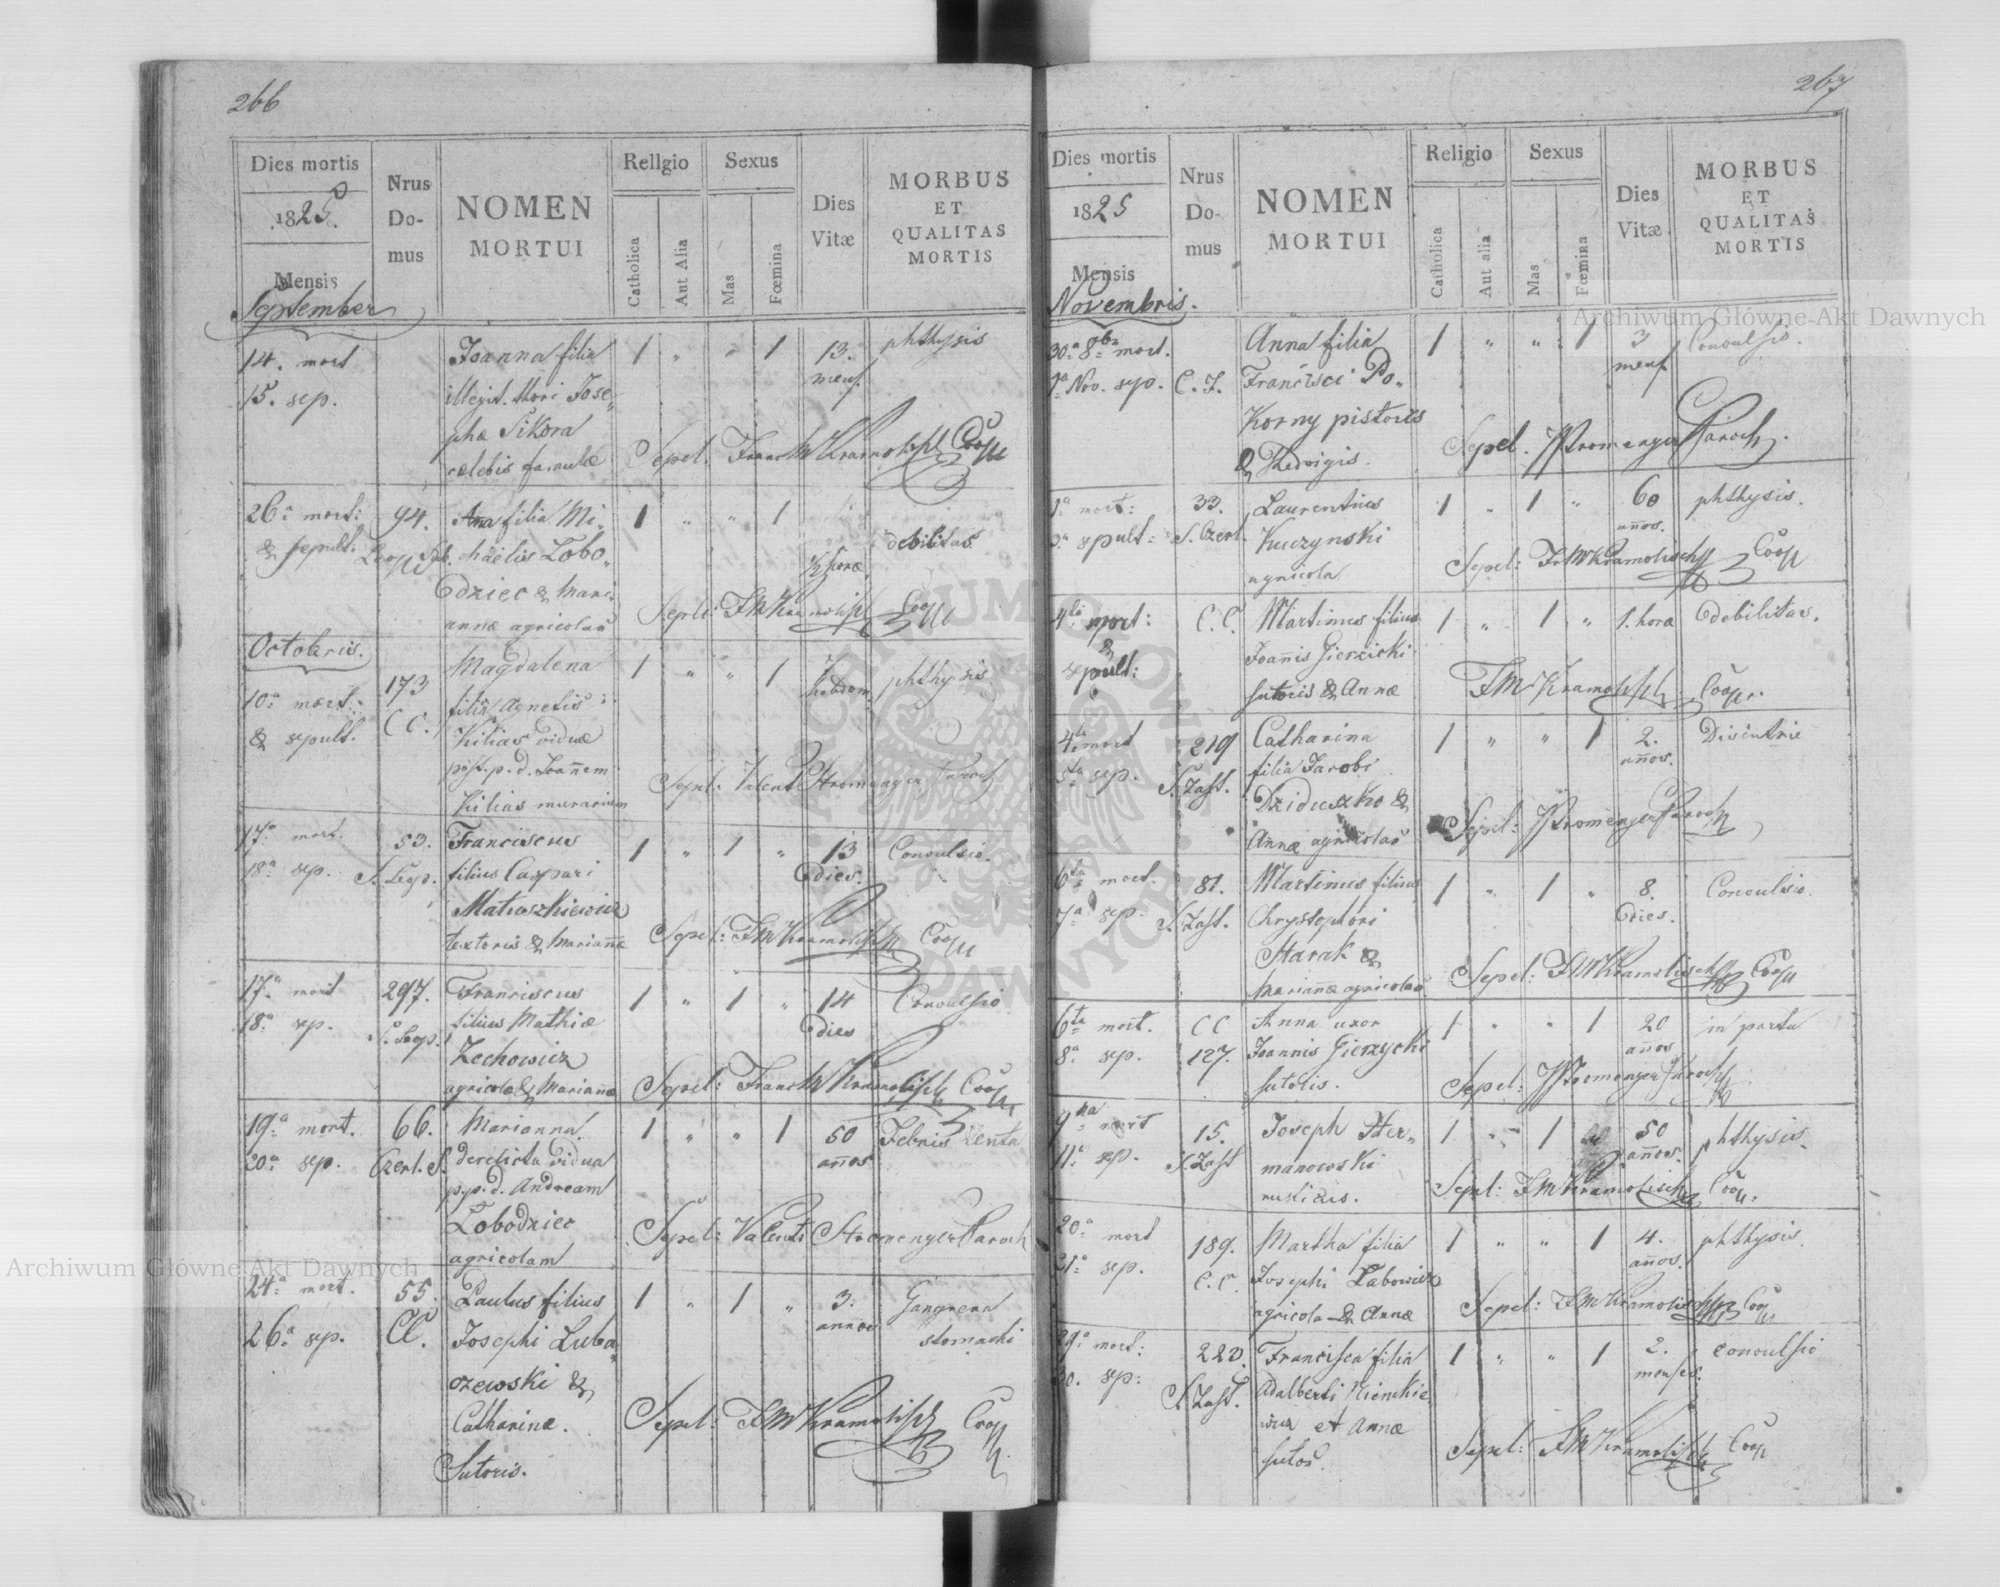 266
Dies mortis
1825.
Mensis
September
Nrus
Do-
mus
NOMEN
MORTUI
Religio
Catholica
Aut Alia
Sexus
Mas
Fœmina
Dies
Vitæ
MORBUS
ET
QUALITAS
MORTIS
14. mort
15. sep.
Joanna filia
illegit. thori Jose-
phæ Sikora
cælebis famulæ
1 " " 1
13.
mens.
phthysis
Sepel: Kramolisch Coop
26a mort:
& sepult.
94.
Ana filia Mi-
chäelis Lobo-
dziec & Mari-
annæ agricolaӯ
1 " " 1
horæ
debilitas
Sepel: FM Kramolisch Coop
Octobris.
10a mort.
& sepult.
173
CC.
Magdalena
filia Agnetis
Kilias viduæ
post. p. d. Joannem
Kilias murarium
1 " " 1
hebdom.
phthysis
Sepel: Valent Stromenger Paroch
17a mort.
18a sep.
53.
S. Leop.
Franciscus
filius Caspari
Matuszkiewicz
textoris & Mariannæ
1 " 1 "
13
dies.
Convulsio.
Sepel: FM Kramolisch Coop
17a mort
18a sep.
297.
S. Leop.
Franciscus
filius Mathiæ
Zechowicz
agricolæ & Mariannæ
1 " 1 "
14
dies
Convulsio
Sepel: Kramolisch Coop
19a mort.
20a sep.
66.
Czerl. S.
Marianna
derelicta vidua
p. p. d. Andream
Lobodziec
agricolam
1 " " 1
50
annos
Febris lenta
Sepel: Valent Stromenger Paroch
24a mort.
26a sep.
55.
CC.
Paulus filius
Josephi Luba-
czewski &
Catharinæ.
Sutoris.
1 " 1 "
3.
annos
Gangrena
stomachi
Sepel: FM Kramolisch Coop
267
Dies mortis
1825
Mensis
Novembris.
Nrus
Do-
mus
NOMEN
MORTUI
Religio
Catholica
Aut alia
Sexus
Mas
Fœmina
Dies
Vitæ
MORBUS
ET
QUALITAS
MORTIS
30a 8bris mort.
1a Nov. sep.
C. J.
Anna filia
Francisci Po-
korny pistoris
& Hedvigis.
1 " " 1
3
mens
Convulsio.
Sepel. Stromenger Paroch.
1a mort:
sepult:
33.
S. Czerl.
Laurentius
Kuczynski
agricola
1 " 1 "
60
años.
phthysis.
Sepel: FM Kramolisch Coop
4ta mort:
&
sepult:
C. C.
Martinus filius
Joannis Gierzicki
sutoris & Annæ
1 " 1 "
1. hora
debilitas.
FM Kramolisch Coop.
4ta mort
5ta sep.
219
S. Zast.
Catharina
filia Jacobi
Dziduszko &
Annæ agricolaӯ
1 " " 1
2.
años.
Disentrie
Sepel: Stromenger Paroch
6ta mort.
7a sep.
81.
S. Zast.
Martinus filius
Chrystophori
Starak &
Mariannæ agricolaӯ
1 " 1 "
8.
dies.
Convulsio.
Sepel: FM Kramolisch Coop
6ta mort.
8a sep.
CC
127.
Anna uxor
Joannis Gierzycki
sutoris.
1 " " 1
20
años
in partu
Sepel: Stromenger Paroch
9na mort
11a sep.
15.
S. Zast
Joseph Her-
manowski
rusticus.
1 " 1
50
años.
phthysis.
Sepel: FM Kramolisch Coop.
20a mort
21a sep.
189.
C. C.
Martha filia
Josephi Labowicz
agricola & Annæ
1 " " 1
4.
años.
phthysis.
Sepel: FM Kramolisch Coop
29a mort:
30. sep:
220.
S. Zast.
Francisca filia
Adalberti
et Annæ
1 " " 1
2.
menses.
convulsio
Sepel: FM Kramolisch Coop
Archiwum Główne Akt Dawnych
Archiwum Główne Akt Dawnych
ARCHIWUM GŁÓWNE AKT DAWNYCH